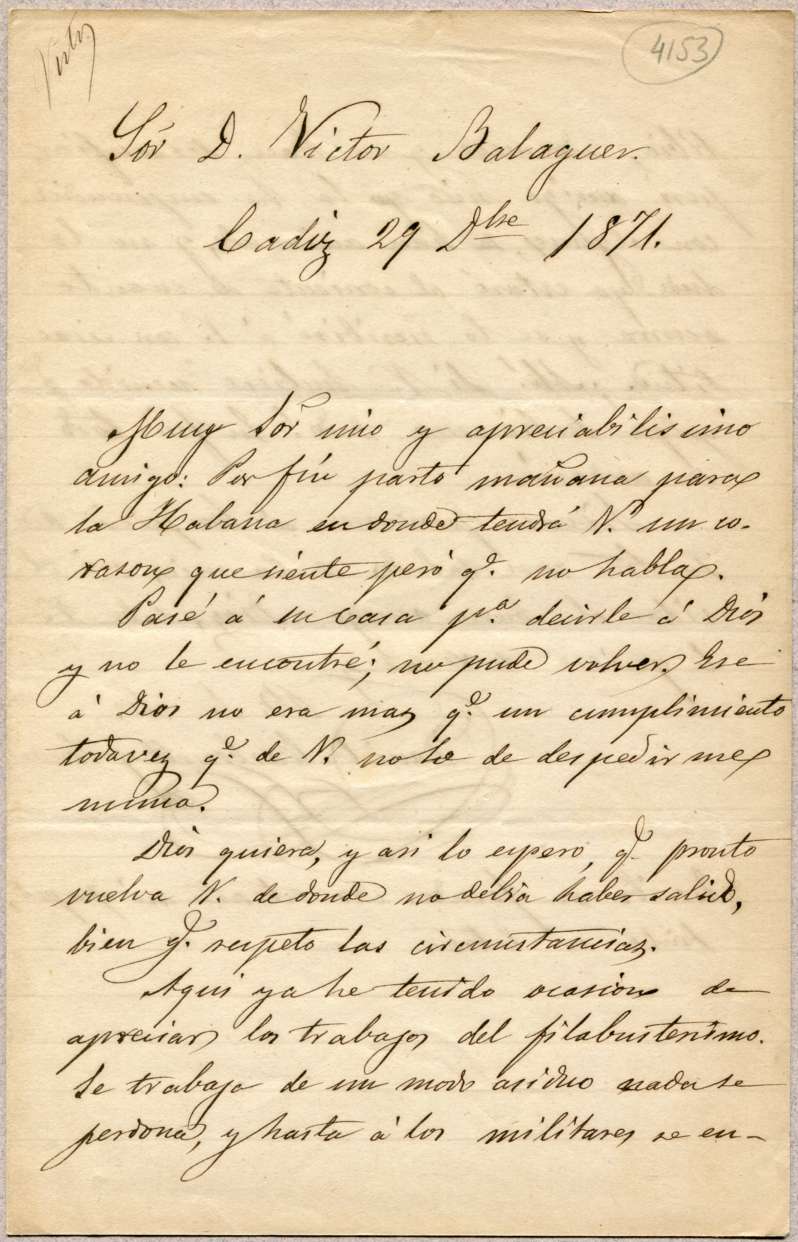 4153
Sór D. Victor Balaguer.
Cadiz 29 Dbre 1871.
Muy Sór mio y apreciabilisimo
amigo: Por fin parto mañana para
la Habana en donde tendrá V. un co-
rason que siente peró q.e no habla.
Pasé á su casa p.a decirle á Dios
y no le encontré; no pude volver. Ese
á Dios no era mas q.e un cumplimiento
toda vez q.e de V. no he de despedirme
nunca.
Dios quiera, y asi lo espero, q.e pronto
vuelva V. de donde no debia haber salido,
bien q.e respeto las circunstancias.
Aqui ya he tenido ocasion de
apreciar los trabajos del filabusterismo.
Se trabaja de un modo asiduo nada se
perdona, y hasta á los militares se en-